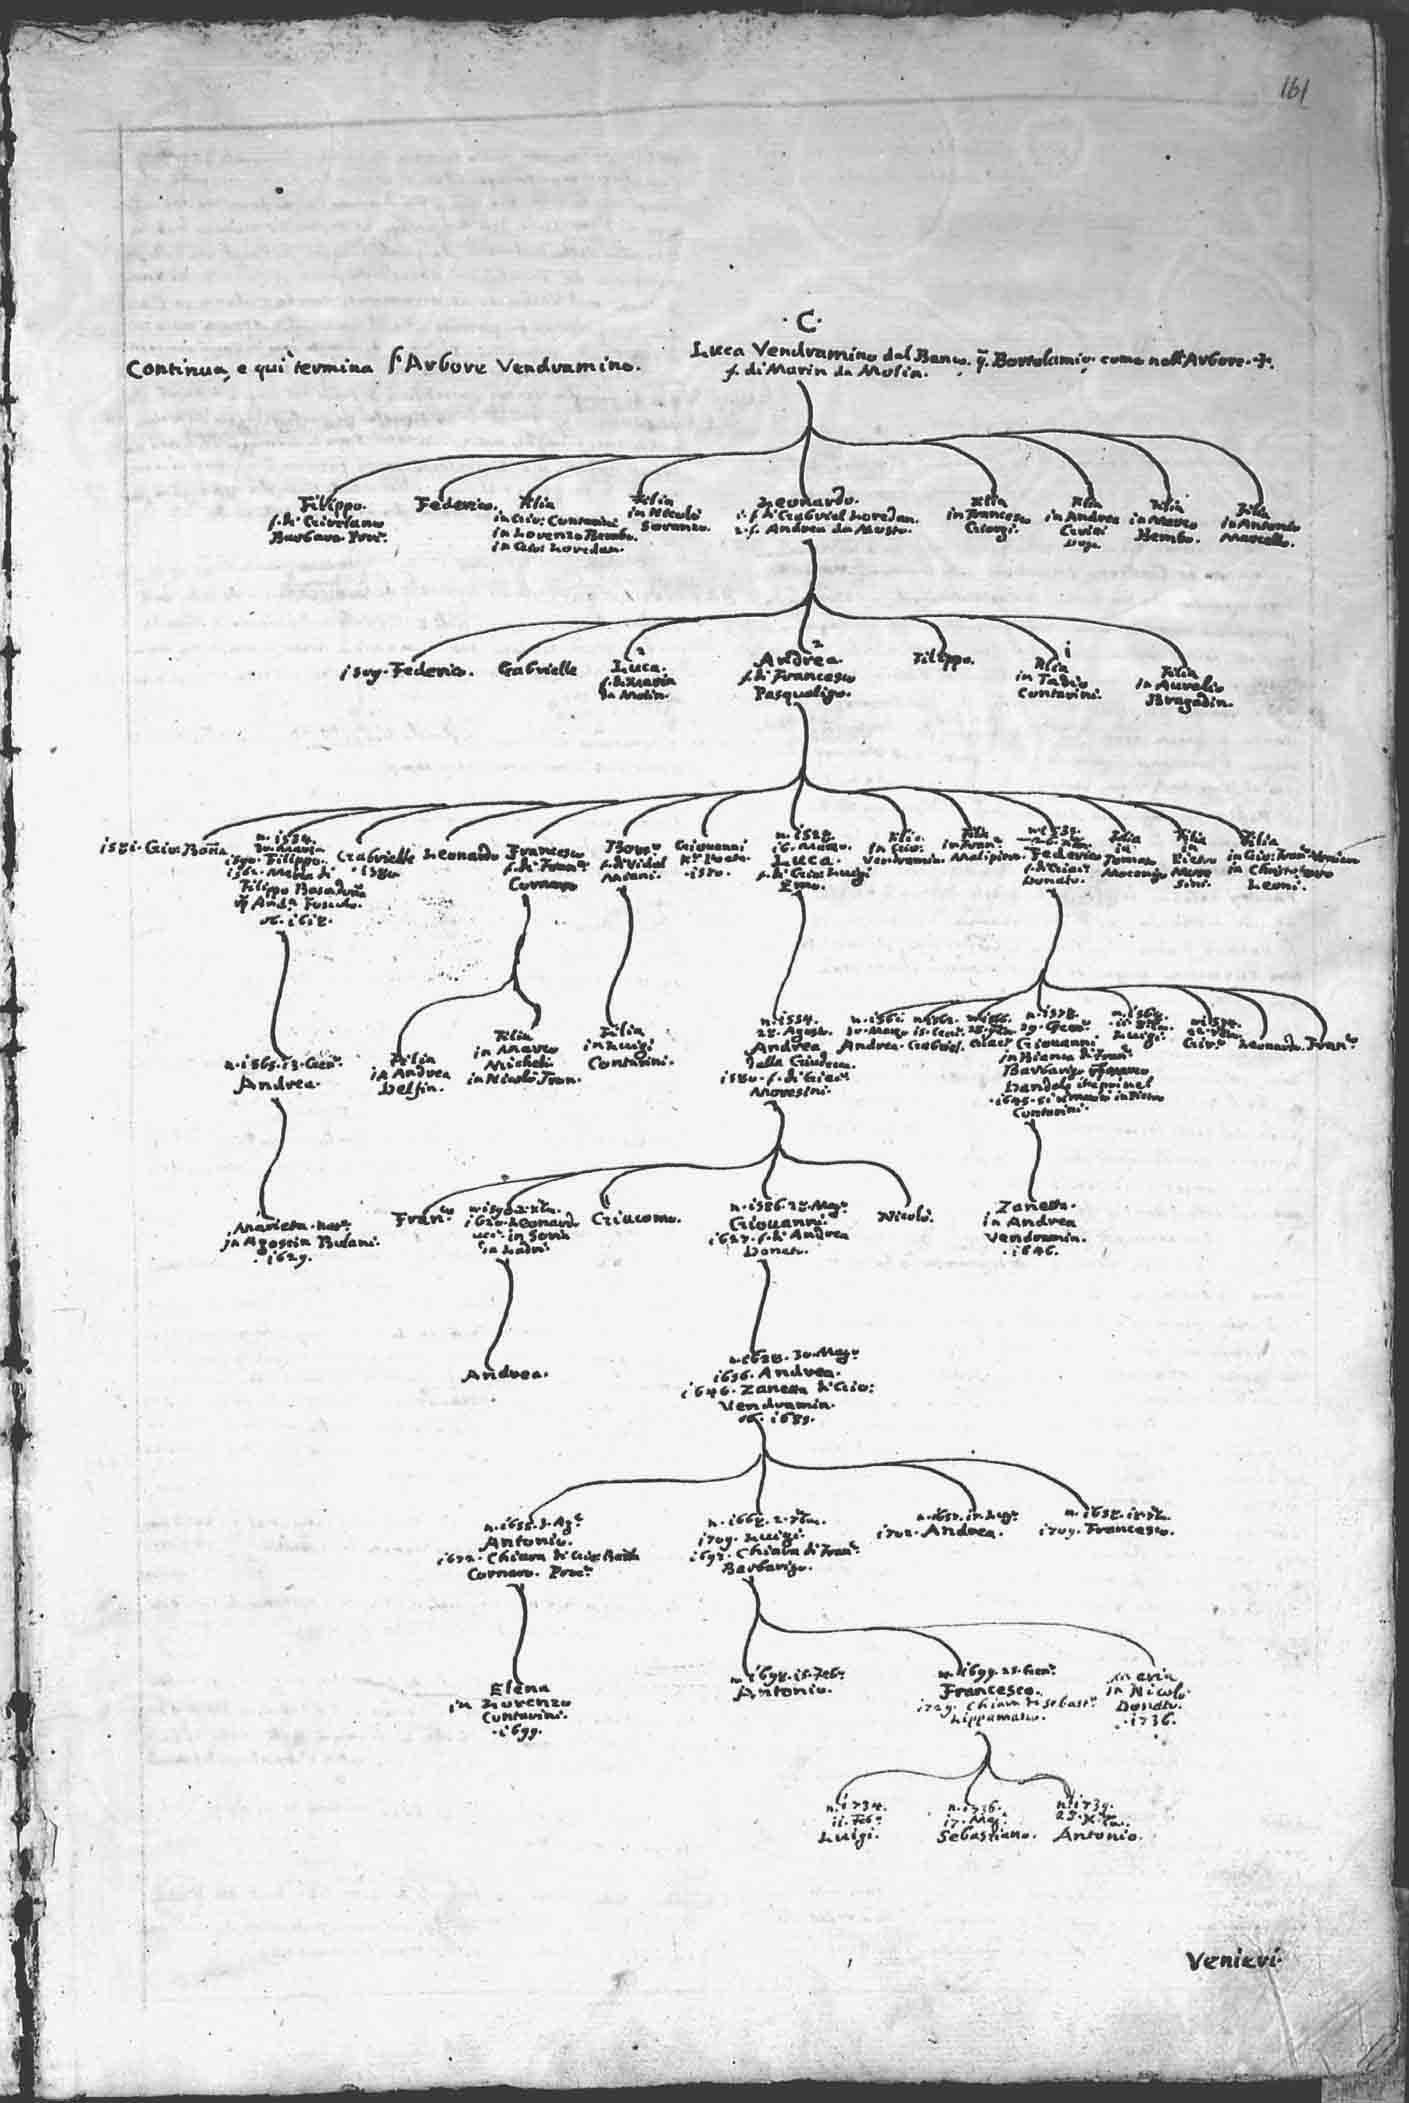 161
·C·
Continua, e qui termina l'Arbore Vendramino.
Luca Vendramino dal Banco. q. Bortolamio come nell'Arbore
f. di Marin da Molin.
Filippo.
f. di Girolamo
Barbaro Procr.
Federico.
Filia
in Gio: Contarini
in Lorenzo Bembo.
in Gio: Loredan.
Filia
in Nicolò
Soranzo.
Leonardo.
1. f. di Gabriel Loredan.
2. f. Andrea da Mosto.
Filia
in Francesco
Giorgi.
Filia
in Andrea
Gritti
Doge.
Filia
in Marco
Bembo.
Filia
in Antonio
Marcello.
1509. Federico.
Gabrielle
2
Luca.
f. di Marin
da Molin.
2
Andrea.
f. di Francesco
Pasqualigo.
Filippo.
1
Filia
in Tadio
Contarini.
Filia
in Aurelio
Bragadin.
1581. Gio: Batta
n. 1534.
Filippo.
Filippo Basadonna
ob. 1618.
Gabrielle
1580
Leonardo
Francesco
f. di Franco
Cornaro
Borto
f. di Vidal
Miani.
Giovanni
1580.
n. 1528.
16. Marzo.
Luca.
f. di Gio: Luigi
Emo.
Filia
in Gio:
Vendramin.
Filia
in Franco
Malipiero.
Federico
Donato.
Filia
in
Tomaso
Mocenigo
Filia
in
Pietro
Moro
sini.
Filia
in Gio: Franco Venier
in Christoforo
n. 1565. 13. Genr.
Andrea.
Filia
in Andrea
Delfin.
Filia
in Marco
Michiel
in Nicolò Tron.
Filia
in Luigi
Contarini.
n. 1554.
28. Agosto.
Andrea
dalla Giudecca.
1580. f. di Giac.
Moresini.
Andrea.
Gabriel.
n. 1578.
29. Genr.
Giovanni
in Bianca di Franc.
Barbarigo
Contarini.
Luigi.
Gir.
Leonardo.
Franc.
Marietta
in Agostin Bolani.
1629.
Franco
1620. Leonardo
Giacomo.
n. 1586. 28. Magº
Giovanni.
1627. f. di Andrea
Donato.
Nicolò.
Zanetta.
in Andrea
Vendramin.
1646.
Andrea.
n. 1628. 30. Magº
1656. Andrea.
1646. Zanetta di Gio:
Vendramin.
ob. 1685.
n. 1655. 3. Agº
Antonio.
1672. Chiara di Gio: Batta
Cornaro. Procr.
n. 1668. 2. 7bre.
1709. Luigi.
1697. Chiara di Franc.
Barbarigo.
1702. Andrea.
1709. Francesco.
Elena
in Lorenzo
Contarini.
1699.
n. 1698. 15. Febr.
Antonio.
n. 1699. 25. Genr.
Francesco.
1729. Chiara di Sebast.
Lippamano.
Maria
in Nicolò
Donato.
1736.
n. 1734.
11. Febr.
Luigi.
n. 1736.
17. Mag.
Sebastiano.
n. 1739.
Antonio.
Venieri.